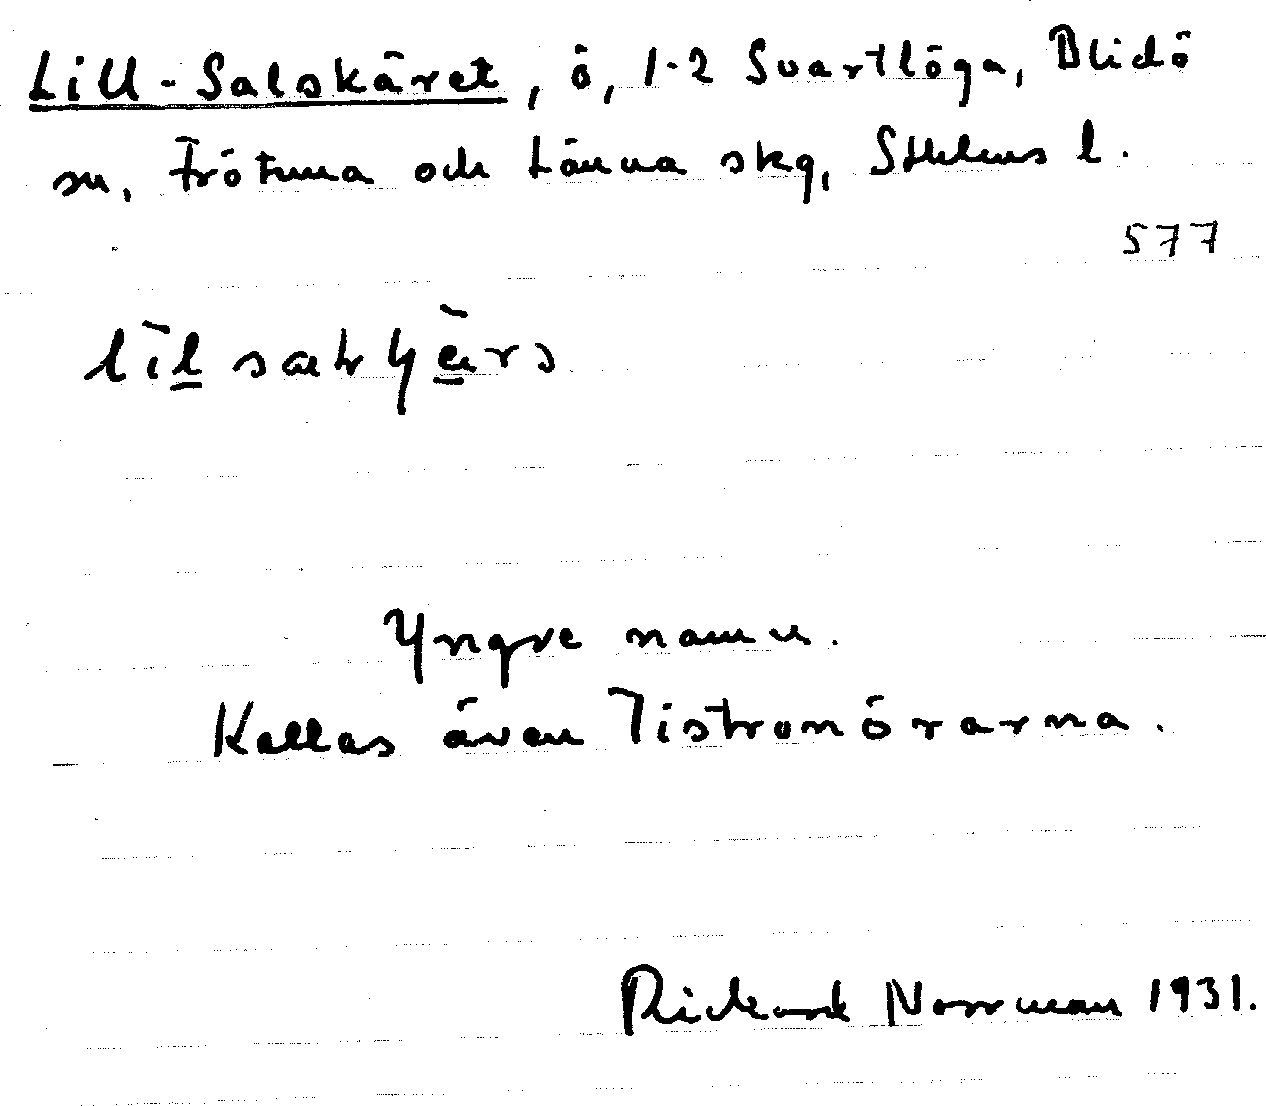 Lill-Salskäret, ö, 1-2 Svartlöga, Blidö
sn, Frötuna och Länna skg, Sthlms l.
577
Yngre namn.
Kallas även Tistronörarna.
Rickard Norrman 1931.